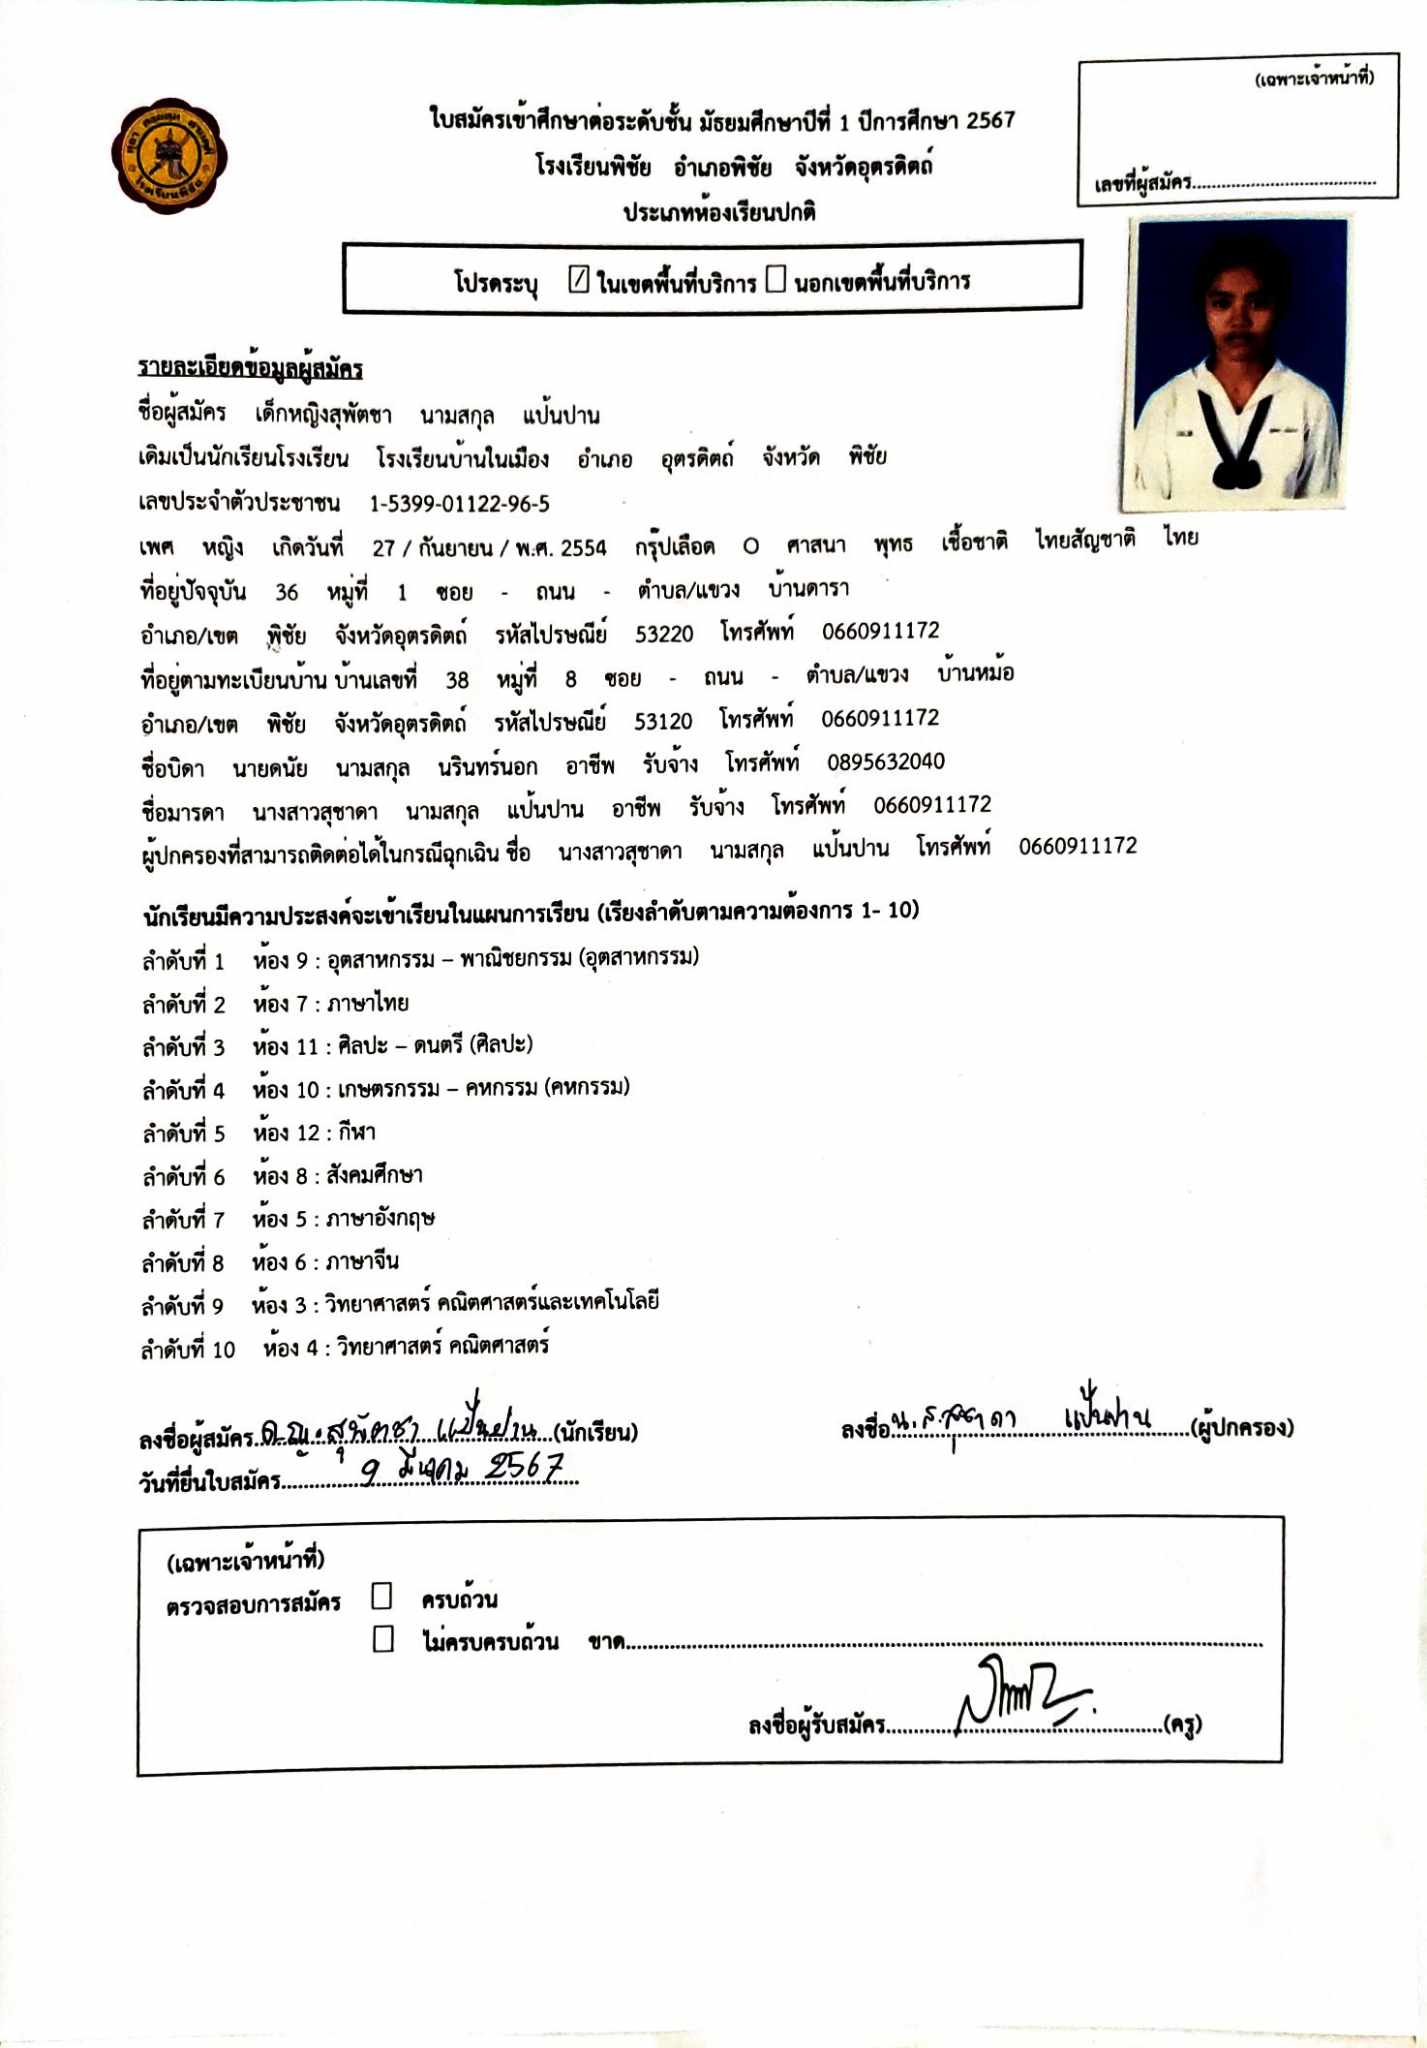 (เฉพาะเจ้าหน้าที่)
เลขที่ผู้สมัคร
ใบสมัครเข้าศึกษาต่อระดับชั้น มัธยมศึกษาปีที่ 1 ปีการศึกษา 2567
โรงเรียนพิชัย อำเภอพิชัย จังหวัดอุตรดิตถ์
ประเภทห้องเรียนปกติ
โปรดระบุ ☑ ในเขตพื้นที่บริการ ☐ นอกเขตพื้นที่บริการ
รายละเอียดข้อมูลผู้สมัคร
ชื่อผู้สมัคร เด็กหญิงสุพัตชา นามสกุล แป้นปาน
เดิมเป็นนักเรียนโรงเรียน โรงเรียนบ้านในเมือง อำเภอ อุตรดิตถ์ จังหวัด พิชัย
เลขประจำตัวประชาชน 1-5399-01122-96-5
เพศ หญิง เกิดวันที่ 27 / กันยายน / พ.ศ. 2554 กรุ๊ปเลือด O ศาสนา พุทธ เชื้อชาติ ไทยสัญชาติ ไทย
ที่อยู่ปัจจุบัน 36 หมู่ที่ 1 ซอย - ถนน - ตำบล/แขวง บ้านดารา
อำเภอ/เขต พิชัย จังหวัดอุตรดิตถ์ รหัสไปรษณีย์ 53220 โทรศัพท์ 0660911172
ที่อยู่ตามทะเบียนบ้าน บ้านเลขที่ 38 หมู่ที่ 8 ซอย - ถนน - ตำบล/แขวง บ้านหม้อ
อำเภอ/เขต พิชัย จังหวัดอุตรดิตถ์ รหัสไปรษณีย์ 53120 โทรศัพท์ 0660911172
ชื่อบิดา นายดนัย นามสกุล นรินทร์นอก อาชีพ รับจ้าง โทรศัพท์ 0895632040
ชื่อมารดา นางสาวสุชาดา นามสกุล แป้นปาน อาชีพ รับจ้าง โทรศัพท์ 0660911172
ผู้ปกครองที่สามารถติดต่อได้ในกรณีฉุกเฉิน ชื่อ นางสาวสุชาดา นามสกุล แป้นปาน โทรศัพท์ 0660911172
นักเรียนมีความประสงค์จะเข้าเรียนในแผนการเรียน (เรียงลำดับตามความต้องการ 1- 10)
ลำดับที่ 1 ห้อง 9 : อุตสาหกรรม – พาณิชยกรรม (อุตสาหกรรม)
ลำดับที่ 2 ห้อง 7 : ภาษาไทย
ลำดับที่ 3 ห้อง 11 : ศิลปะ – ดนตรี (ศิลปะ)
ลำดับที่ 4 ห้อง 10 : เกษตรกรรม – คหกรรม (คหกรรม)
ลำดับที่ 5 ห้อง 12 : กีฬา
ลำดับที่ 6 ห้อง 8 : สังคมศึกษา
ลำดับที่ 7 ห้อง 5 : ภาษาอังกฤษ
ลำดับที่ 8 ห้อง 6 : ภาษาจีน
ลำดับที่ 9 ห้อง 3 : วิทยาศาสตร์ คณิตศาสตร์และเทคโนโลยี
ลำดับที่ 10 ห้อง 4 : วิทยาศาสตร์ คณิตศาสตร์
ลงชื่อผู้สมัคร ด.ญ. สุพัตชา แป้นปาน (นักเรียน) ลงชื่อ น.ส. สุชาดา แป้นปาน (ผู้ปกครอง)
วันที่ยื่นใบสมัคร 9 มีนาคม 2567
(เฉพาะเจ้าหน้าที่)
ตรวจสอบการสมัคร ☐ ครบถ้วน
☐ ไม่ครบครบถ้วน ขาด
ลงชื่อผู้รับสมัคร (ครู)